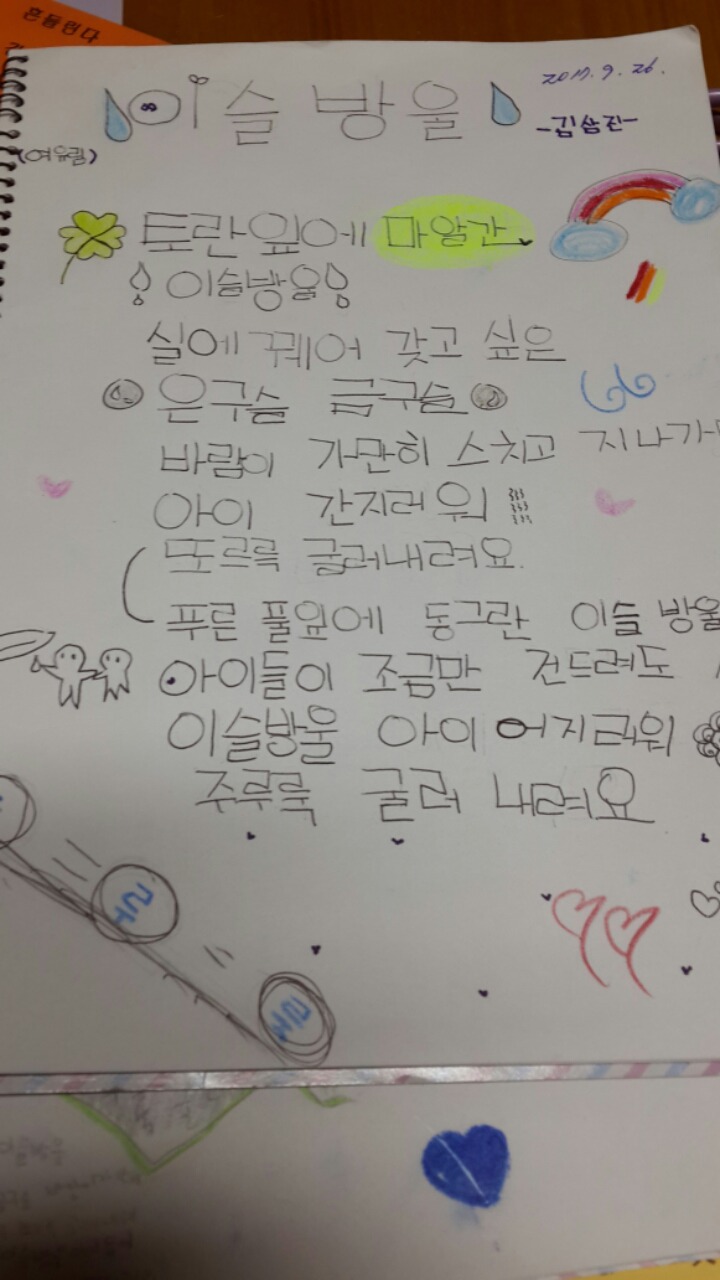 흔들린다
이슬방울
2017.9.26.
-김삼진-
(여유림)
토란잎에 마알간
이슬방울
실에 꿰어 갖고 싶은
은구슬 금구슬
바람이 가만히 스치고 지나가
아이 간지러워
또르륵 굴러내려요.
푸른 풀잎에 동그란 이슬 방울
아이들이 조금만 건드려도
이슬방울 아이 어지러워
주루룩 굴러 내려요